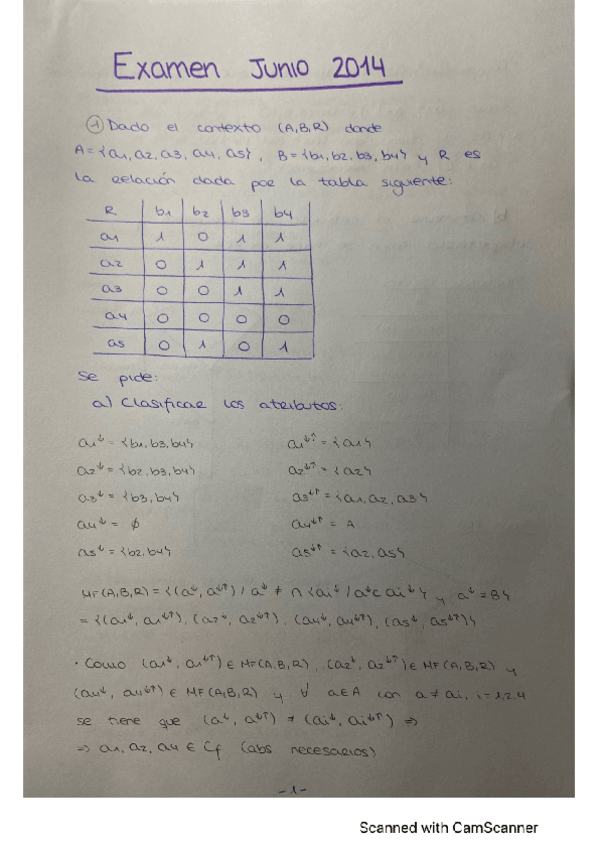 Examen Junio 2014
① Dado el contexto (A,B,R) donde
A={a1, a2, a3, a4, a5}, B={b1, b2, b3, b4} y R es
la relación dada por la tabla siguiente:
R b1 b2 b3 b4
a1 1 0 1 1
a2 0 1 1 1
a3 0 0 1 1
a4 0 0 0 0
a5 0 1 0 1
Se pide:
a) Clasificar los atributos:
a1↓ = {b1, b3, b4} a1↓↑ = {a1}
a2↓ = {b2, b3, b4} a2↓↑ = {a2}
a3↓ = {b3, b4} a3↓↑ = {a1, a2, a3}
a4↓ = ∅ a4↓↑ = A
a5↓ = {b2, b4} a5↓↑ = {a2, a5}
MF(A,B,R) = {(a↓, a↓↑) / a↓ ≠ ∩ {ai↓ / a↓ ⊂ ai↓} y a↓ ≠ B}
= {(a1↓, a1↓↑), (a2↓, a2↓↑), (a4↓, a4↓↑), (a5↓, a5↓↑)}
· Como (a1↓, a1↓↑) ∈ MF(A,B,R), (a2↓, a2↓↑) ∈ MF(A,B,R) y
(a4↓, a4↓↑) ∈ MF(A,B,R) y ∀ a∈A con a ≠ ai, i=1,2,4
se tiene que (a↓, a↓↑) ≠ (ai↓, ai↓↑) ⇒
⇒ a1, a2, a4 ∈ Cf (abs necesarios)
-1-
Scanned with CamScanner